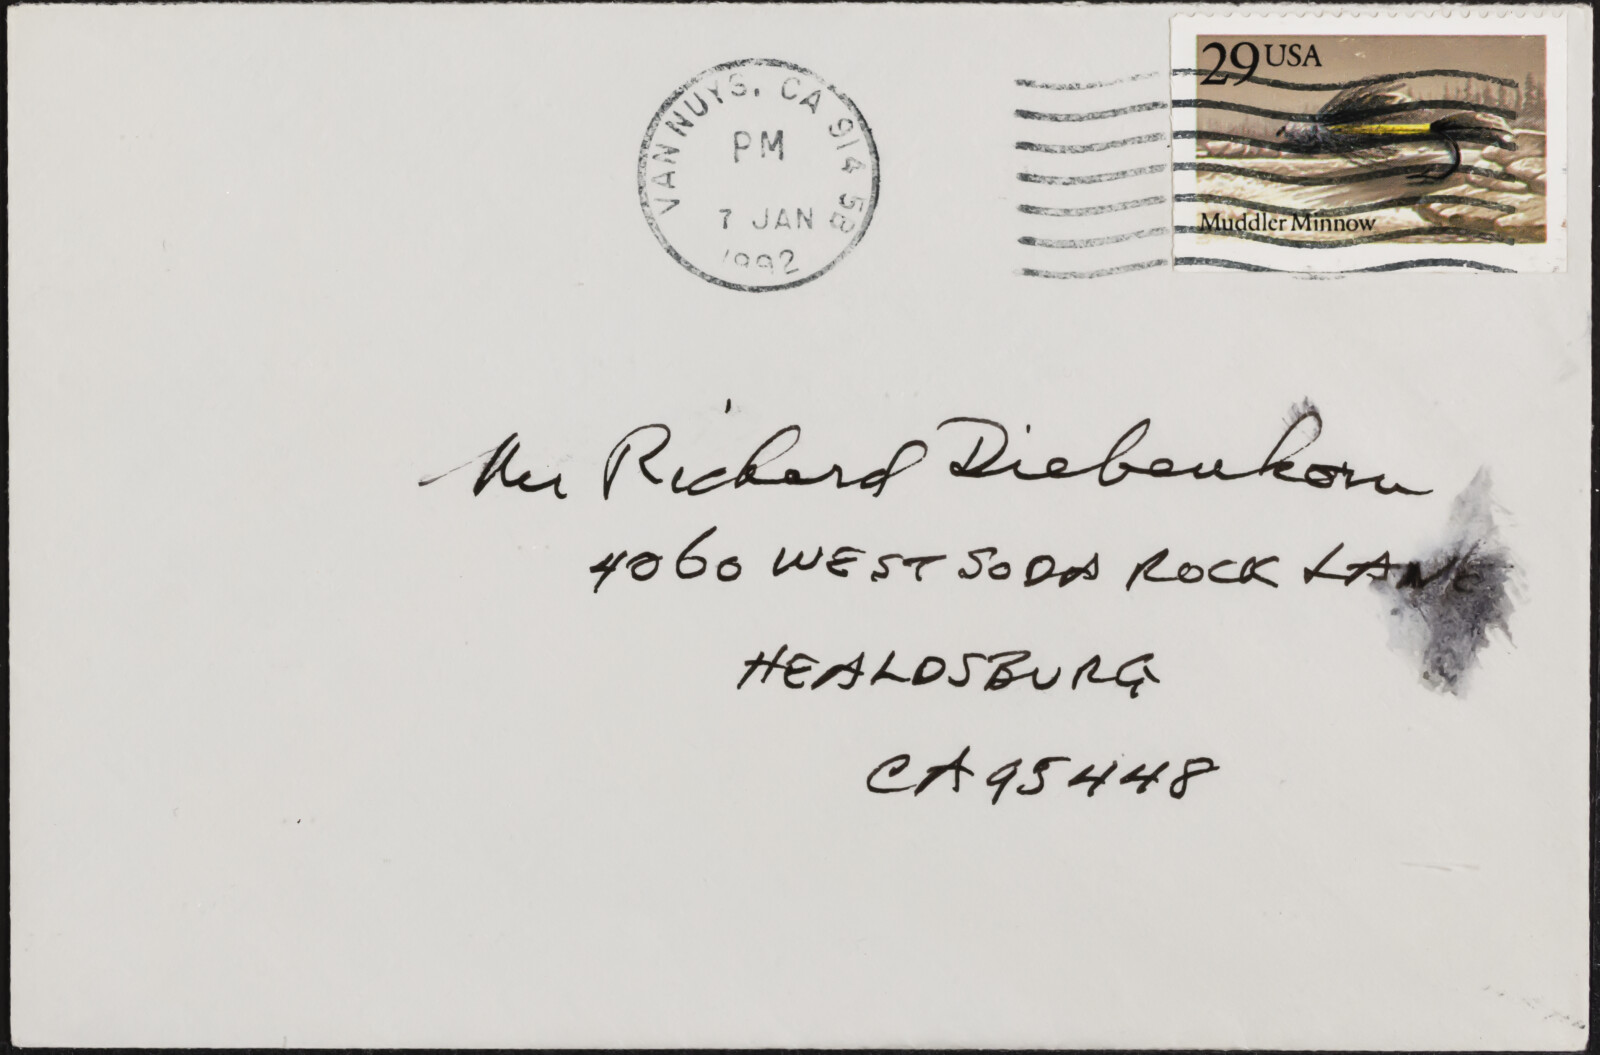 VAN NUYS, CA 914 5B
PM
7 JAN
1992
29 USA
Muddler Minnow
Mr Richard Diebenkorn
4060 WEST SODA ROCK LANE
HEALDSBURG
CA 95448